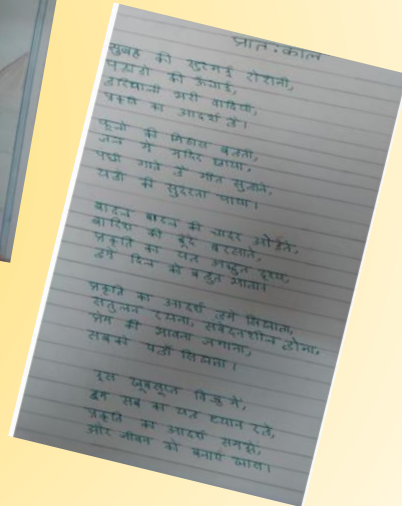 प्रातःकाल
सुबह की सुरमई रोशनी,
पहाड़ो की ऊंचाई,
हरियाली भरी वादियां,
प्रकृति का आदर्श है।
फूलो की मिठास बनता,
जल में मंदिर छाया,
पंछी गाते है गीत सुहाने,
यही की सुंदरता पाया।
बादल बादल की चादर ओढ़ते,
बारिश की बूंद बरसाते,
प्रकृति का यह अद्भुत दृश्य,
हमें दिल को बहुत भाता।
प्रकृति का आदर्श हमें सिखाता,
संतुलन रखना, संवेदनशील होना,
प्रेम की भावना जगाना,
सबको यही सिखाना।
इस खूबसूरत विश्व में,
हम सब का यह ध्यान रहे,
प्रकृति का आदर्श समझे,
और जीवन को बनाएं